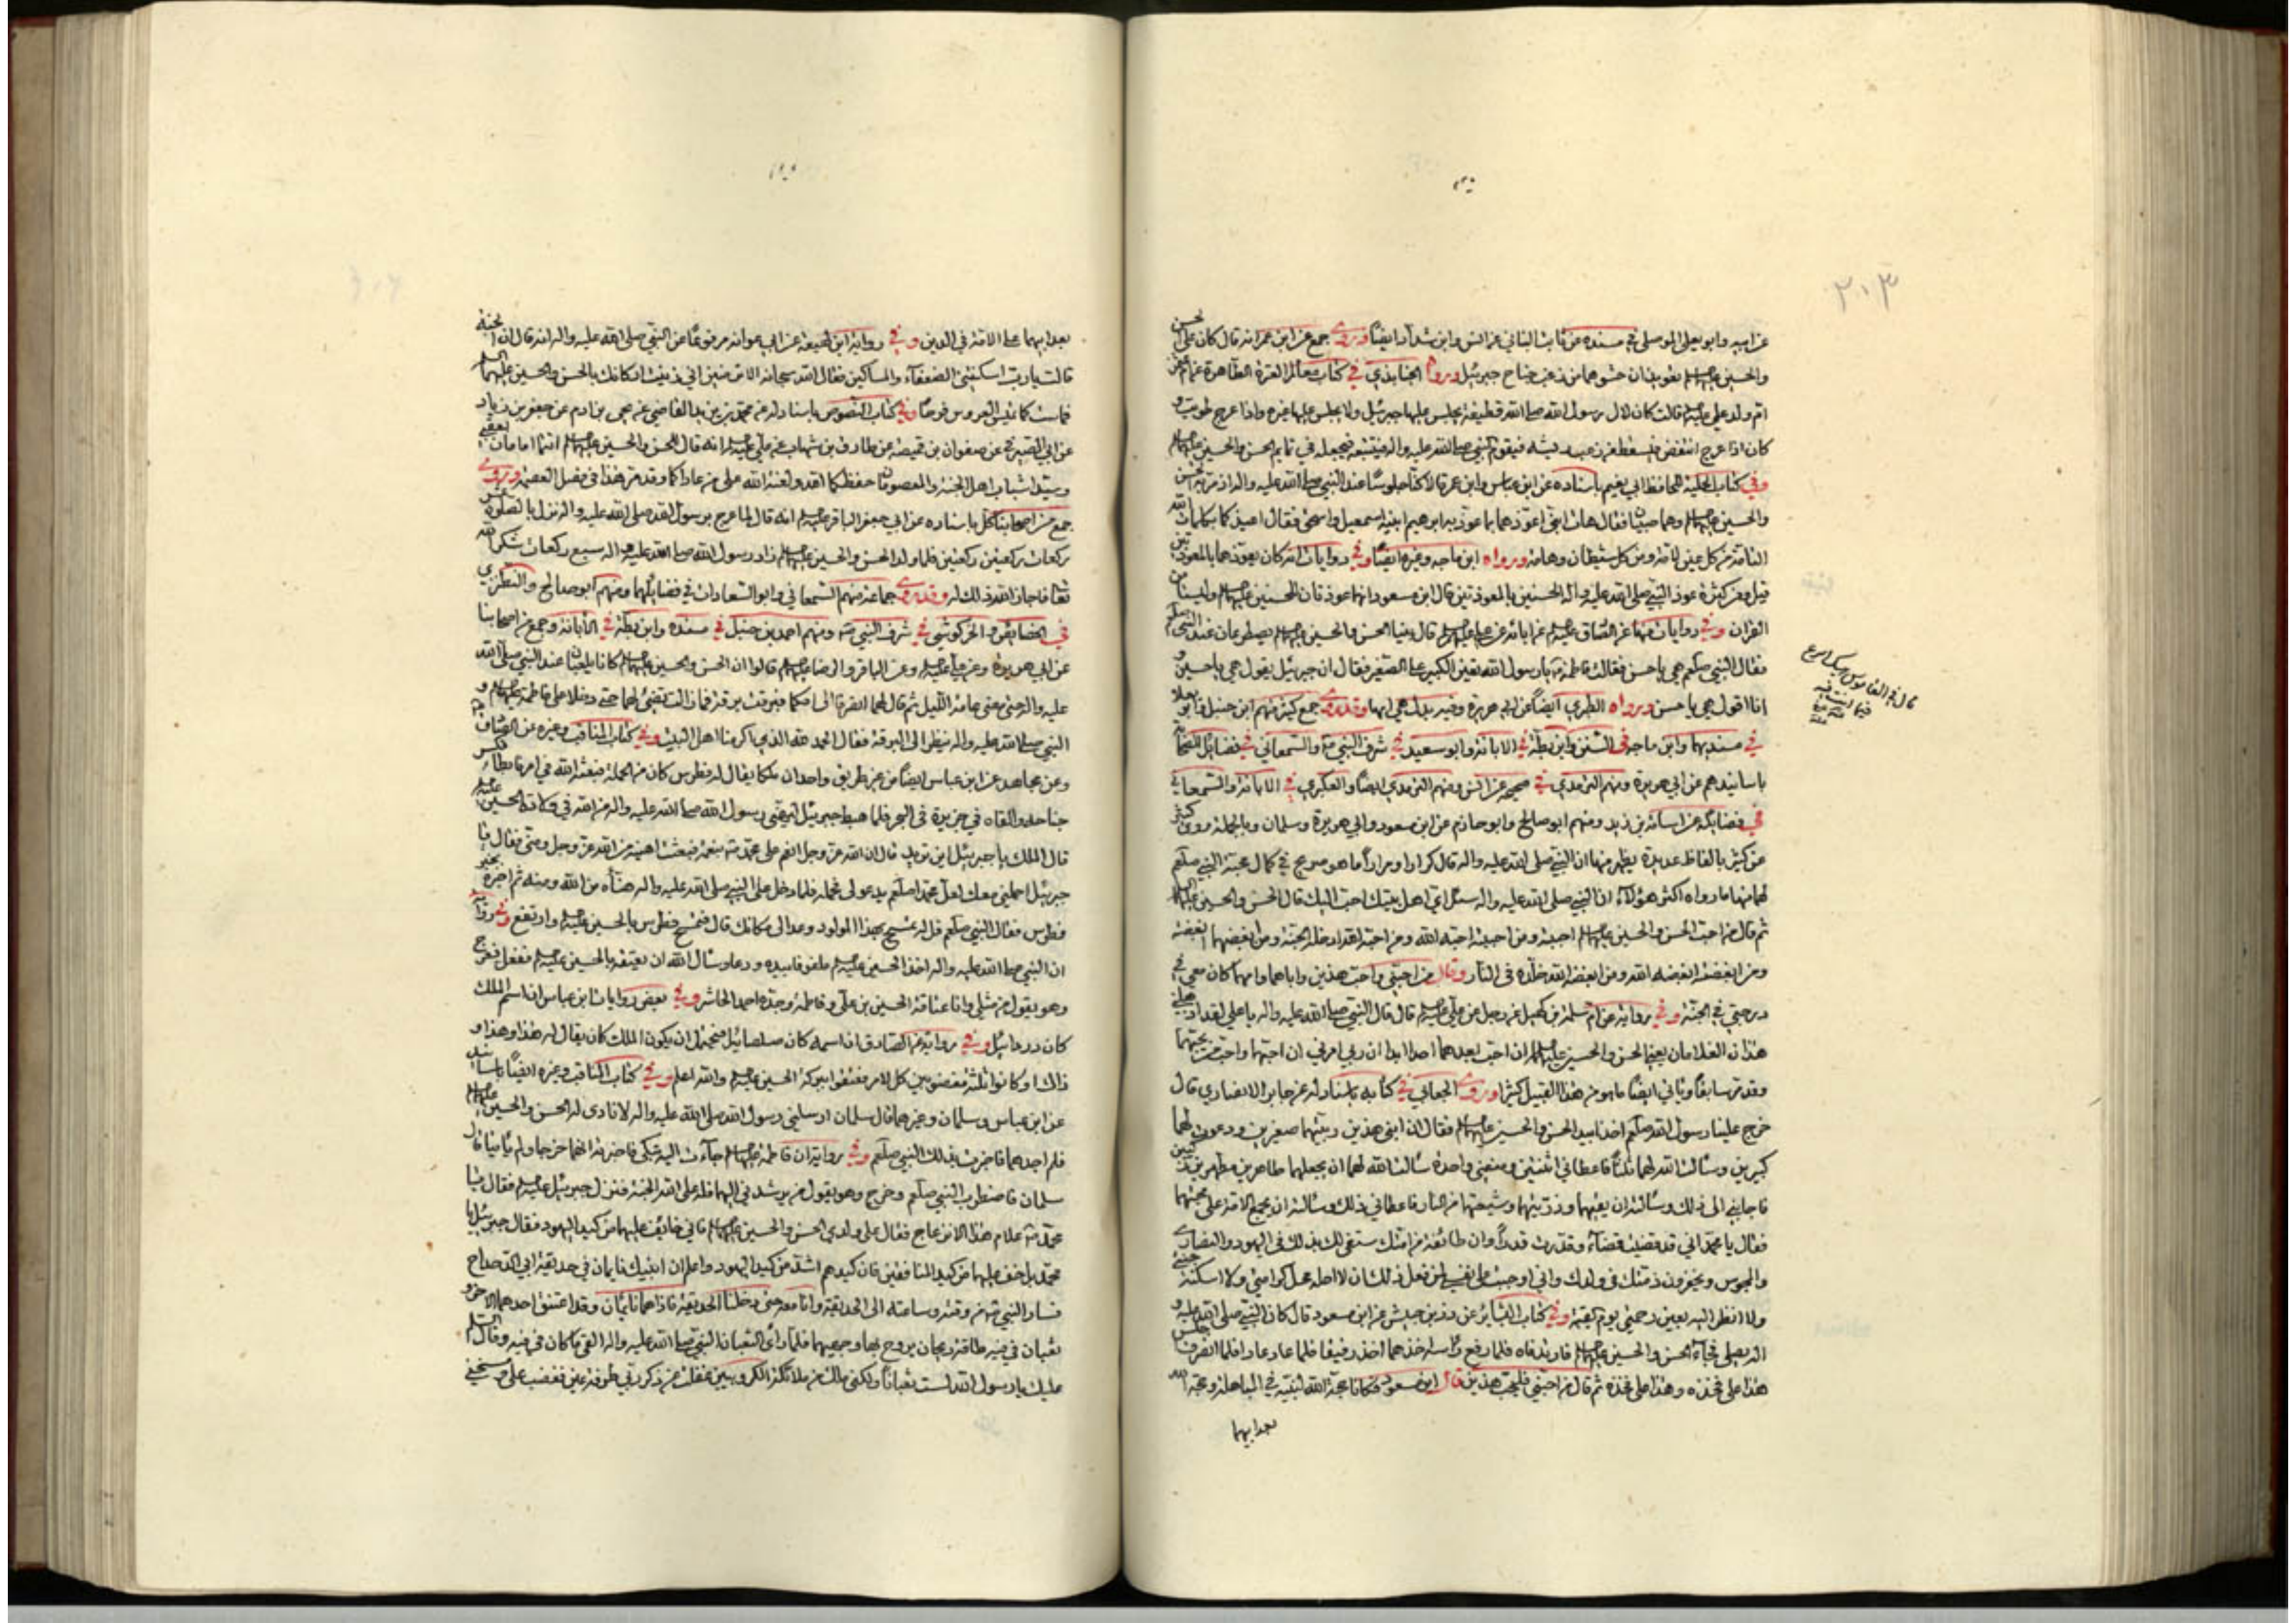 ٣٠٣
عن ابيه وابو يعلى الموصلي في مسنده عن ثابت البناني عن انس وابن شداد ايضا وروى جمع عن ابن عمر انه قال كان على الحسن
والحسين عليهما السلم تعويذان حشوهما من زغب جناح جبرئيل وروى الجنابذي في كتاب معالم العترة الطاهرة عن ام عثمان
ام ولد علي عليه السلم قالت كان لال رسول الله صلى الله قطيفة يجلس عليها جبرئيل ولا يجلس عليها غيره واذا عرج طويت و
كان اذا عرج انتفض فيسقط من زغب ريشه فيقوم النبي صلى الله عليه واله فيتبعه فيجعله في تمايم الحسن والحسين عليهما السلم
وفي كتاب الحلية للحافظ ابي نعيم باسناده عن ابن عباس وابن عمر قالا كنا جلوسا عند النبي صلى الله عليه واله اذ مر به الحسن
والحسين عليهما السلم وهما صبيان فقال هات ابني اعوذهما بما عوذ به ابرهيم ابنيه اسمعيل واسحق فقال اعيذكما بكلمات الله
التامة من كل عين لامة ومن كل شيطان وهامة ورواه ابن ماجه وغيره ايضا وفي روايات انه كان يعوذهما بالمعوذتين
قيل ومن كثرة عوذ النبي صلى الله عليه واله الحسنين بالمعوذتين قال ابن مسعود انهما عوذتان للحسنين عليهما السلم وليستا من
القران وفي روايات منها عن الصادق عليه السلم عن ابائه عن علي عليه السلم قال بينا الحسن والحسين عليهما السلم يصطرعان عند النبي صلعم
فقال النبي صلعم هي يا حسن فقالت فاطمة يا رسول الله تعين الكبير على الصغير فقال ان جبرئيل يقول هي يا حسين و
انا اقول هي يا حسن ورواه الطبري ايضا عن ابي هريرة وفيه بدل هي ايها وقد روى جمع كثير منهم ابن حنبل وابو يعلا
في مسنديهما وابن ماجه في السنن وابن بطة في الابانة وابو سعيد في شرف النبي والسمعاني في فضائل الصحابة
باسانيدهم عن ابي هريرة ومنهم الترمذي في صحيحه عن انس ومنهم الترمذي ايضا والعكبري في الابانة والسمعاني
في فضايله عن اسامة بن زيد ومنهم ابو صالح وابو حازم عن ابن مسعود وابي هريرة وسلمان وبالجملة روى كثير
عن كثير بالفاظ عديدة يظهر منها ان النبي صلى الله عليه واله قال كرارا ومرارا ما هو صريح في كمال محبة النبي صلعم
لهما منها ما رواه اكثر هؤلاء ان النبي صلى الله عليه واله سئل اي اهل بيتك احب اليك قال الحسن والحسين عليهما السلم
ثم قال من احب الحسن والحسين عليهما السلم احببته ومن احببته احبه الله ومن احبه الله ادخله الجنة ومن ابغضهما ابغضته
ومن ابغضته ابغضه الله ومن ابغضه الله خلده في النار وقال من احبني واحب هذين واباهما وامهما كان معي في
درجتي في الجنة وفي رواية عن سلمة بن كهيل عن رجل عن علي عليه السلم قال قال النبي صلى الله عليه واله يا علي لقد اذهلني
هذان الغلامان يعني الحسن والحسين عليهما السلم ان احب بعدهما احدا ابدا ان ربي امرني ان احبهما واحب من يحبهما
وقد مر سابقا وياتي ايضا ما هو من هذا القبيل كثيرا وروى الجعابي في كتابه باسناد له عن جابر الانصاري قال
خرج علينا رسول الله صلعم اخذا بيد الحسن والحسين عليهما السلم فقال ان ابني هذين ربيتهما صغيرين ودعوت لهما
كبيرين وسألت الله لهما ثلثا فاعطاني اثنتين ومنعني واحدة سألت الله لهما ان يجعلهما طاهرين مطهرين زكيين
فاجابني الى ذلك وسألته ان يقيهما وذريتهما وشيعتهما النار فاعطاني ذلك وسألته ان يجمع الامة على محبتهما
فقال يا محمد اني قد قضيت قضاء وقدرت قدرا وان طائفة من امتك ستفي لك بذمتك في اليهود والنصارى
والمجوس ويخفرون ذمتك في ولدك واني اوجبت على نفسي لمن فعل ذلك ان لا احله محل كرامتي ولا اسكنه جنتي
ولا انظر اليه بعين رحمتي يوم القيمة وفي كتاب عن زر بن حبيش عن ابن مسعود قال كان النبي صلى الله عليه و
اله يصلي فجاء الحسن والحسين عليهما السلم فارتدفاه فلما رفع راسه اخذهما اخذا رفيقا فلما عاد عادا فلما انصرف اجلس
هذا على فخذه وهذا على فخذه ثم قال من احبني فليحب هذين قال ابن مسعود فكانا حجة الله لنبيه في المباهلة وحجة الله
بعد ابيهما
قال في القاموس
بعد ابيهما على الامة في الدين وفي رواية ابن لهيعة عن ابي عوانة مرفوعا عن النبي صلى الله عليه واله انه قال ان الجنة
قالت يا رب اسكنتني الضعفاء والمساكين فقال الله سبحانه الا ترضين اني زينت اركانك بالحسن والحسين عليهما السلم
فماست كما تميس العروس فرحا وفي كتاب النصوص باسناد له عن محمد بن يزيد القاضي عن يحيى بن ادم عن جعفر بن زياد
عن ابي الصيرفي عن صفوان بن قبيصة عن طارق بن شهاب عن علي عليه السلم انه قال للحسن والحسين عليهما السلم انتما امامان بعقبي
وسيدا شباب اهل الجنة والمعصومان حفظكما الله ولعنة الله على من عاداكما وقد مر هذا في فصل العصمة وروى
جمع من اصحابنا كل باسناده عن ابي جعفر الباقر عليه السلم انه قال لما عرج برسول الله صلى الله عليه واله نزل بالصلوة عشر
ركعات ركعتين ركعتين فلما ولد الحسن والحسين عليهما السلم زاد رسول الله صلى الله عليه واله سبع ركعات شكرا لله
تعا فاجاز الله ذلك له وقد روى جماعة منهم السمعاني وابو السعادات في فضايلهما ومنهم ابو صالح والنطنزي
في الخصايص والخركوشي في شرف النبي ومنهم احمد بن حنبل في مسنده وابن بطة في الابانة وجمع من اصحابنا
عن ابي هريرة وعن علي عليه السلم وعن الباقر والرضا عليهما السلم قالوا ان الحسن والحسين عليهما السلم كانا يلعبان عند النبي صلى الله
عليه واله حتى مضى عامة الليل ثم قال لهما انصرفا الى امكما فبرقت برقة فما زالت تضئ لهما حتى دخلا على فاطمة عليها السلم و
النبي صلى الله عليه واله ينظر الى البرقة فقال الحمد لله الذي اكرمنا اهل البيت وفي كتاب المناقب وغيره عن الصادق
وعن مجاهد عن ابن عباس ايضا من غير طريق واحد ان ملكا يقال له فطرس كان من الحملة فبعثه الله في امر فابطأ فكسر
جناحه والقاه في جزيرة في البحر فلما هبط جبرئيل ليهنئ رسول الله صلى الله عليه واله من الله في ولادة الحسين عليه السلم
قال الملك يا جبرئيل اين تريد قال ان الله عز وجل انعم على محمد بنعمة فبعثت اهنيه من الله عز وجل ومني فقال يا
جبرئيل احملني معك لعل محمدا صلعم يدعو لي فحمله فلما دخل على النبي صلى الله عليه واله هنأه من الله ومنه ثم اخبره بخبر
فطرس فقال النبي صلعم قل له تمسح بهذا المولود وعد الى مكانك قال فتمسح فطرس بالحسين عليه السلم وارتفع وفي رواية
ان النبي صلى الله عليه واله اخذ الحسين عليه السلم ملفوفا بيده ودعا وسأل الله ان يعتقه بالحسين عليه السلم ففعل فعرج
وهو يقول من مثلي وانا عتاقة الحسين بن علي وفاطمة وجده احمد الحاشر وفي بعض روايات ابن عباس ان اسم الملك
كان دردائيل وفي رواية عن الصادق ان اسمه كان صلصائيل فيحتمل ان يكون الملك كان يقال له هذا وهذا و
ذاك او كانوا ثلثة مغضوبين كل لامر فعتقوا ببركة الحسين عليه السلم والله اعلم وفي كتاب المناقب وغيره ايضا باسانيد
عن ابن عباس وسلمان وغيرهما قال سلمان ارسلني رسول الله صلى الله عليه واله لانادي له الحسن والحسين عليهما السلم
فلم اجدهما فاخبرت بذلك النبي صلعم وفي رواية ان فاطمة عليها السلم جاءت اليه تبكي فاخبرته انهما خرجا ولم ياتيا قال
سلمان فاضطرب النبي صلعم وخرج وهو يقول من يرشدني اليهما فله على الله الجنة فنزل جبرئيل عليه السلم فقال يا
محمد علام هذا الانزعاج فقال على ولدي الحسن والحسين عليهما السلم فاني خائف عليهما من كيد اليهود فقال جبرئيل يا
محمد بل خف عليهما من كيد المنافقين فان كيدهم اشد من كيد اليهود واعلم ان ابنيك نايمان في حديقة ابي الدحداح
فسار النبي من وقته وساعته الى الحديقة وانا معه حتى دخلنا الحديقة فاذا هما نايمان وقد اعتنق احدهما الاخر و
ثعبان في فيه طاقة ريحان يروح بها وجهيهما فلما رأى الثعبان النبي صلى الله عليه واله القى ما كان في فيه وقال السلم
عليك يا رسول الله لست ثعبانا ولكني ملك من ملائكة الكروبيين غفلت عن ذكر ربي طرفة عين فغضب على ومسخني